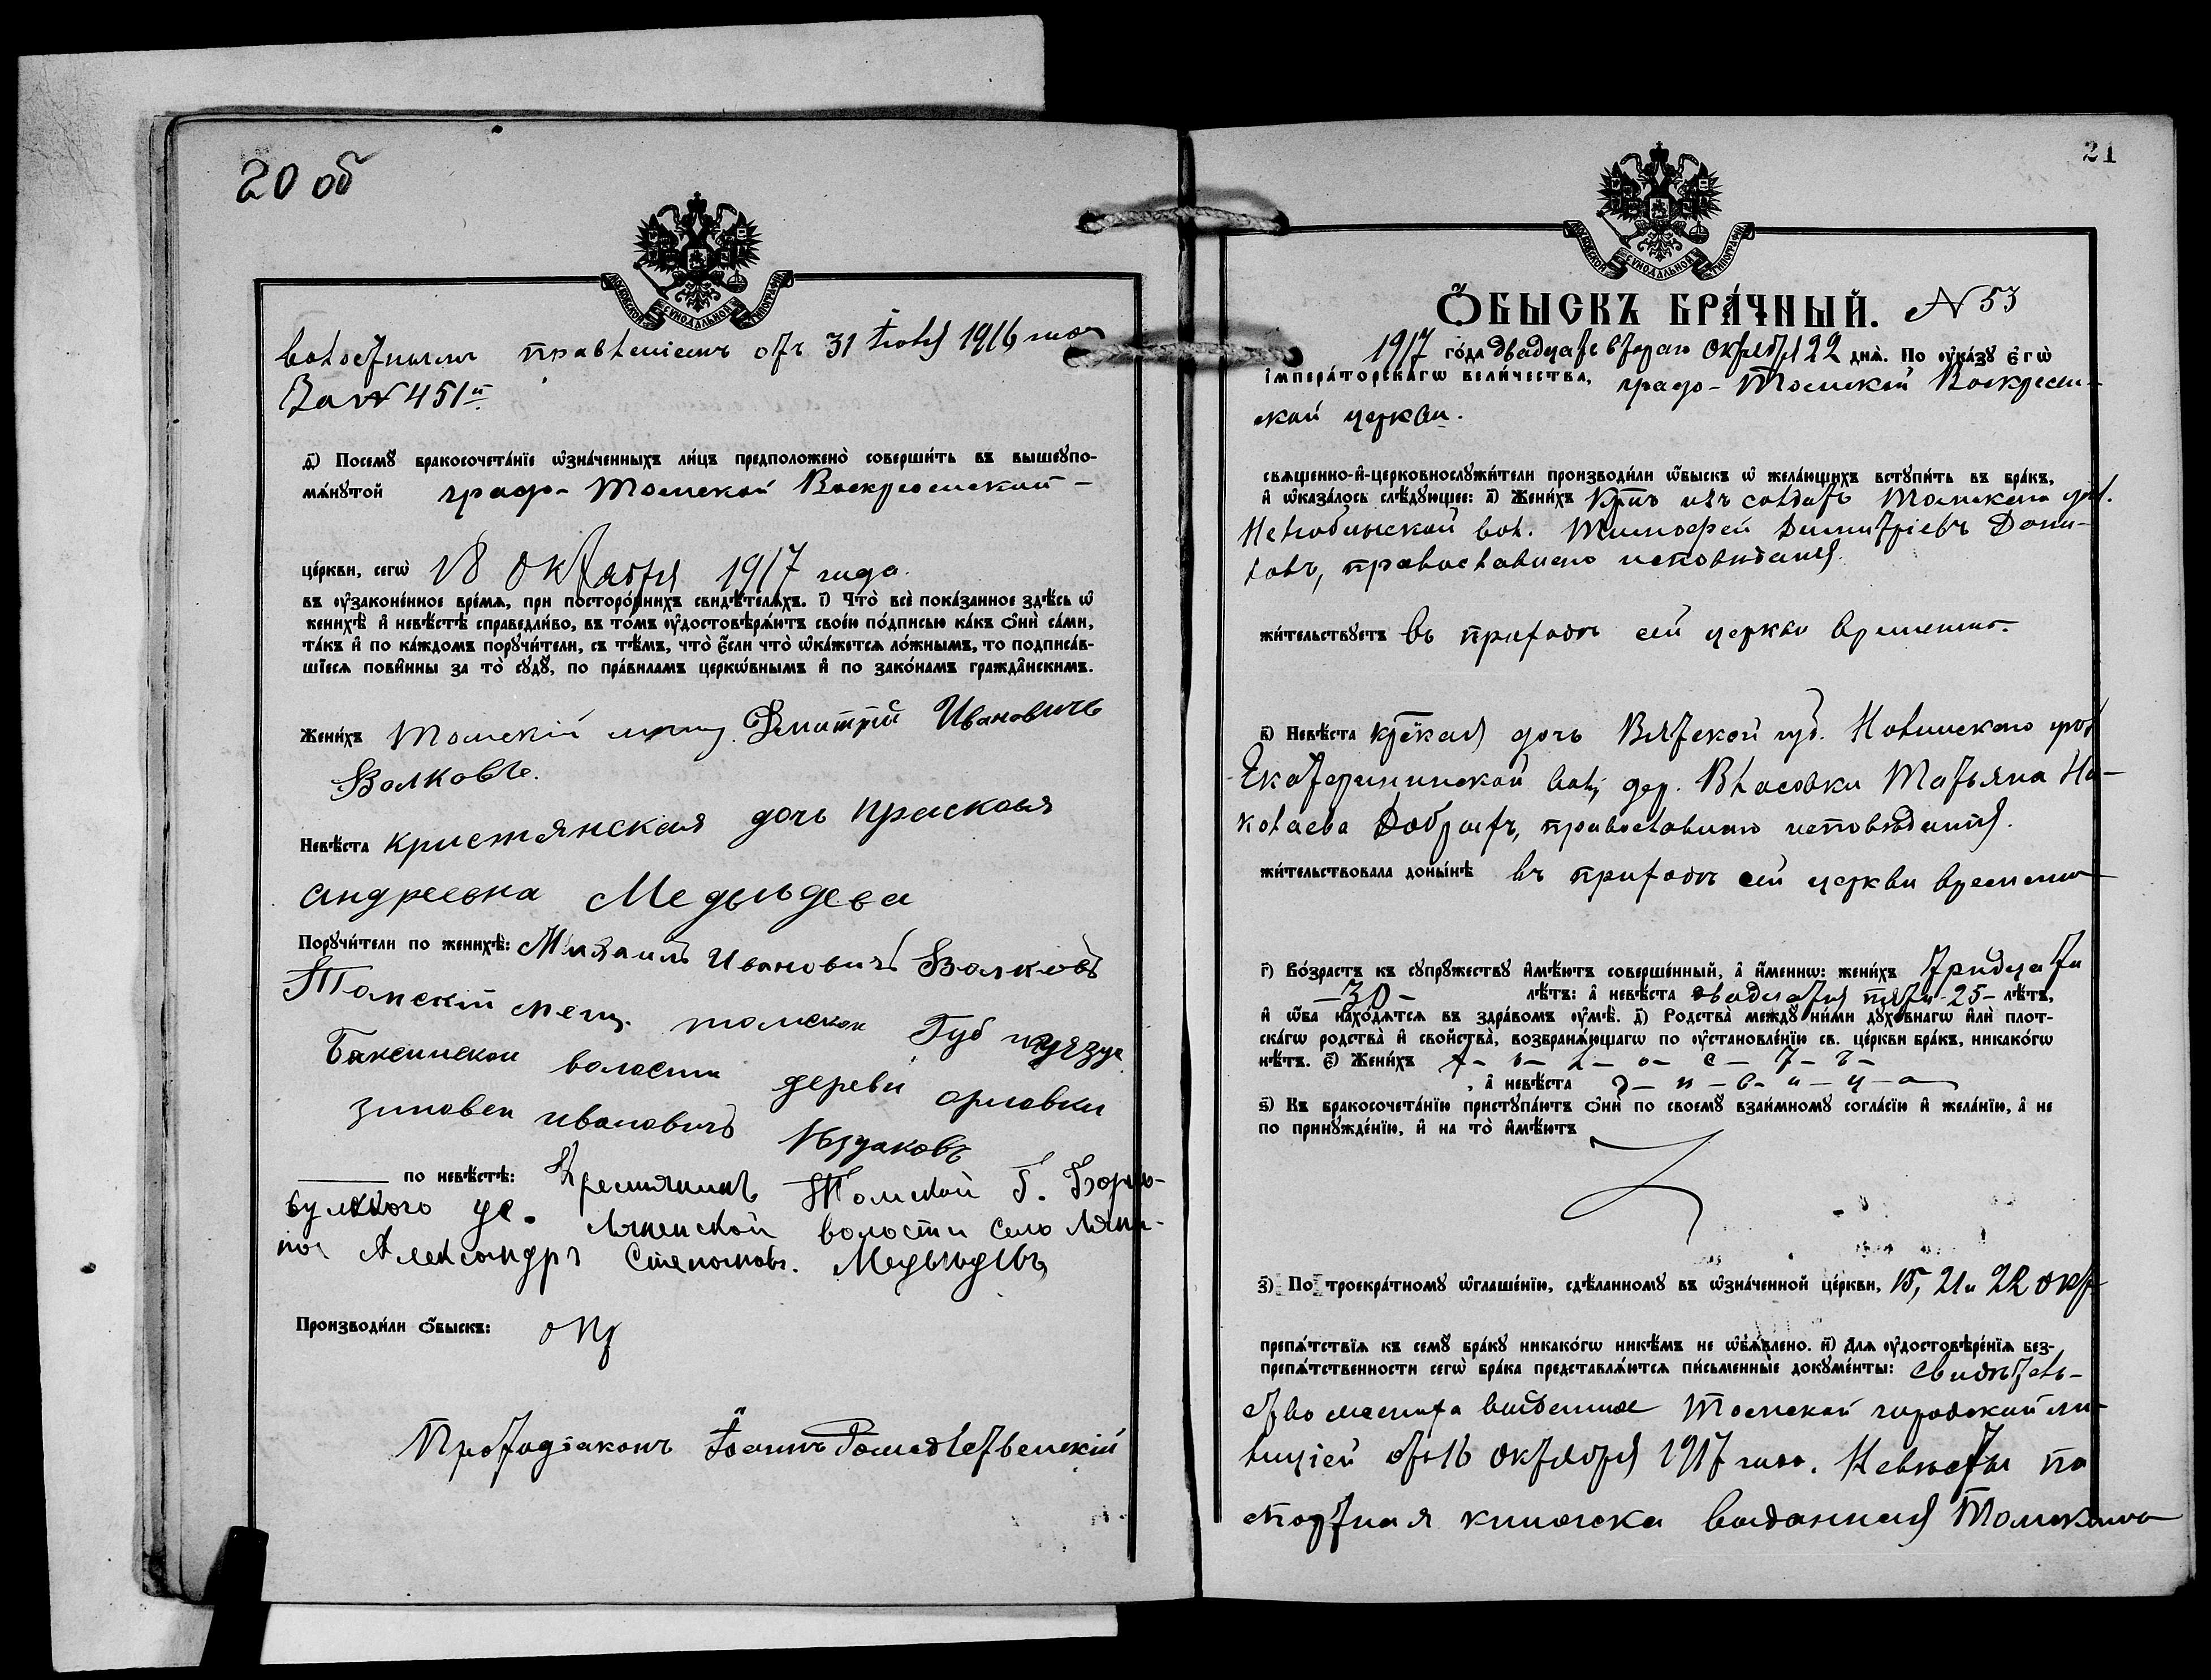 20 об
МОСКОВСКОЙ СѴНОДАЛЬНОЙ ТИПОГРАФІИ
волостнымъ правленіемъ отъ 31 1916 года
За № 451й.
д҃) Посемꙋ бракосочета́нїе ѡ҆зна́ченныхъ ли́цъ предположено̀ соверши́ть въ вышеꙋпо-
мѧ́нꙋтой градо-Томской Воскресенской -
це́ркви, сегѡ̀ 18 октября 1917 года.
въ ᲂу҆зако́ненное вре́мѧ, при посторо́ннихъ свидѣ́телѧхъ. і҃) Что̀ всѐ пока́занное здѣ́сь ѡ҆
женихѣ̀ и҆ невѣ́стѣ справедли́во, въ то́мъ ᲂу҆достовѣрѧ́ютъ свое́ю по́дписью ка́къ ѻ҆нѝ са́ми,
та́къ и҆ по ка́ждомъ порꙋчи́тели, съ тѣ́мъ, что̀ є҆́сли что̀ ѡ҆ка́жетсѧ ло́жнымъ, то подписа́в-
шїесѧ пови́нны за то̀ сꙋдꙋ̀, по пра́виламъ церкѡ́внымъ и҆ по зако́намъ гражда́нскимъ.
Жени́хъ Томскій мещ. Дмитрій Ивановичъ
Волковъ.
Невѣ́ста кристянская дочь прасковя
андреевна Медьведева
Порꙋчи́тели по женихѣ̀: Михаилъ Ивановичъ Волковъ
Томскій мещ. томской Губ
Баксинской волости деревн орловки
зиновеи ивановичъ
по невѣ́стѣ: Крестянинъ Томской Г. Борно-
булского уе. волости Село
Александръ Степановъ. Медьведевъ
Производи́ли ѻ҆́быскъ:
Протодіаконъ Іоаннъ Рождественскій
21
МОСКОВСКОЙ СѴНОДАЛЬНОЙ ТИПОГРАФІИ
Ѻ҆́БЫСКЪ БРА́ЧНЫЙ. № 53
1917 го́да двадцать втораго октября 22 днѧ̀. По ᲂу҆ка́зꙋ є҆гѡ̀
і҆мпера́торскагѡ вели́чества, градо-Томской Воскресен-
ской церкви.
свѧще́нно-и҆-церковнослꙋжи́тели производи́ли ѻ҆́быскъ ѡ҆ жела́ющихъ встꙋпи́ть въ бра́къ,
и҆ ѡ҆каза́лось слѣ́дꙋющее: а҃) Жени́хъ Крнъ изъ солдатъ Томскаго уѣз.
Нелюбинской вол. Тимофей Димитріевъ Дани-
ловъ, православнаго исповѣданія.
жи́тельствꙋетъ въ приходѣ сей церкви временно.
в҃) Невѣ́ста кр̃ская дочь Вятской губ. Нолинскаго уѣз.
Екатерининской вол, дер. Власовки Татьяна Ни-
колаева Добрыхъ, православнаго исповѣданія.
жи́тельствовала доны́нѣ въ приходѣ сей церкви временно
г҃) Во́зрастъ къ сꙋпрꙋ́жествꙋ и҆мѣ́ютъ соверше́нный, а҆ и҆́меннѡ: жени́хъ тридцати
-30- лѣ́тъ: а҆ невѣ́ста двадцати пяти -25- лѣ́тъ,
и҆ ѻ҆́ба нахо́дѧтсѧ въ здра́вомъ ᲂу҆мѣ̀. д҃) Родства̀ междꙋ̀ ни́ми дꙋхо́внагѡ и҆лѝ плот-
ска́гѡ родства̀ и҆ сво́йства̀, возбранѧ́ющагѡ по ᲂу҆становле́нїю св. це́ркви бра́къ, никако́гѡ
нѣ́тъ. є҃) Жени́хъ х-о-л-о-с-т-ъ-
, а҆ невѣ́ста д-ѣ-в-и-ц-а
ѕ҃) Къ бракосочета́нїю пристꙋпа́ютъ ѻ҆нѝ по своемꙋ̀ взаи́мномꙋ согла́сїю и҆ жела́нїю, а҆ не
по принꙋжде́нїю, и҆ на то̀ и҆мѣ́ютъ
з҃) По троекра́тномꙋ ѡ҆глаше́нїю, сдѣ́ланномꙋ въ ѡ҆зна́ченной це́ркви, 15, 21 и 22 окт
препѧ́тствїѧ къ семꙋ̀ бра́кꙋ никако́гѡ никѣ́мъ не ѡ҆б̾ѧ́влено. и҃) Длѧ ᲂу҆достовѣре́нїѧ без-
препѧ́тственности сегѡ̀ бра́ка представлѧ́ютсѧ пи́сьменныѐ докꙋме́нты: свидѣтель-
ство жениха выданное Томской городской ми-
лиціей отъ 16 октября 1917 года. Невѣсты па
спортная книжска выданная Томскимъ